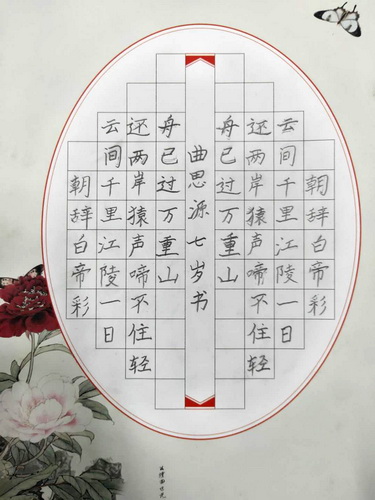 朝辞白帝彩
云间千里江陵一日
还两岸猿声啼不住轻
舟已过万重山
曲思源七岁书
朝辞白帝彩
云间千里江陵一日
还两岸猿声啼不住轻
舟已过万重山